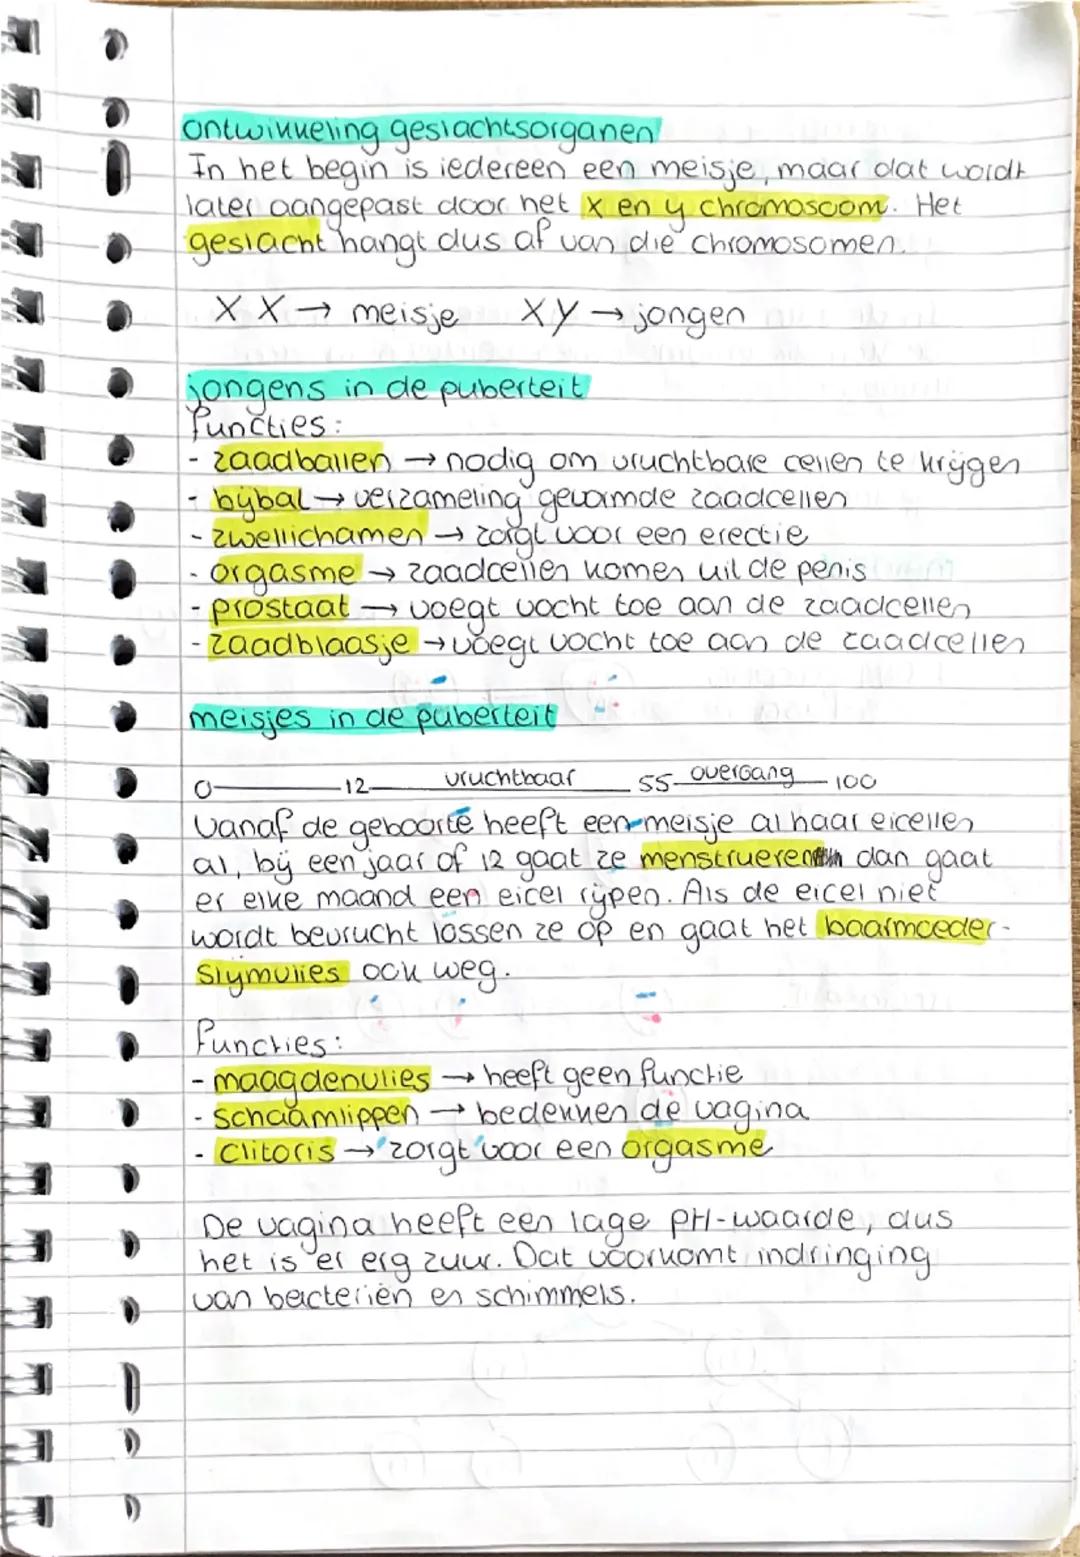 ontwikkeling geslachtsorganen
In het begin is iedereen een meisje, maar dat wordt
later aangepast door het x en y chromosoom. Het
geslacht hangt dus af van die chromosomen.
X X → meisje XY → jongen
jongens in de puberteit
functies:
- zaadballen → nodig om vruchtbare cellen te krijgen
- bijbal → verzameling gevormde zaadcellen
- zwellichamen → zorgt voor een erectie
- orgasme → zaadcellen komen uit de penis
- prostaat → voegt vocht toe aan de zaadcellen
- zaadblaasje → voegt vocht toe aan de zaadcellen
meisjes in de puberteit
0 12 vruchtbaar 55 overgang 100
Vanaf de geboorte heeft een meisje al haar eicellen
al, bij een jaar of 12 gaat ze menstrueren dan gaat
er elke maand een eicel rijpen. Als de eicel niet
wordt bevrucht lossen ze op en gaat het baarmoeder-
slijmvlies ook weg.
functies:
- maagdenvlies → heeft geen functie
- schaamlippen → bedekken de vagina
- clitoris → zorgt voor een orgasme
De vagina heeft een lage pH-waarde, dus
het is er erg zuur. Dat voorkomt indringing
van bacteriën en schimmels.